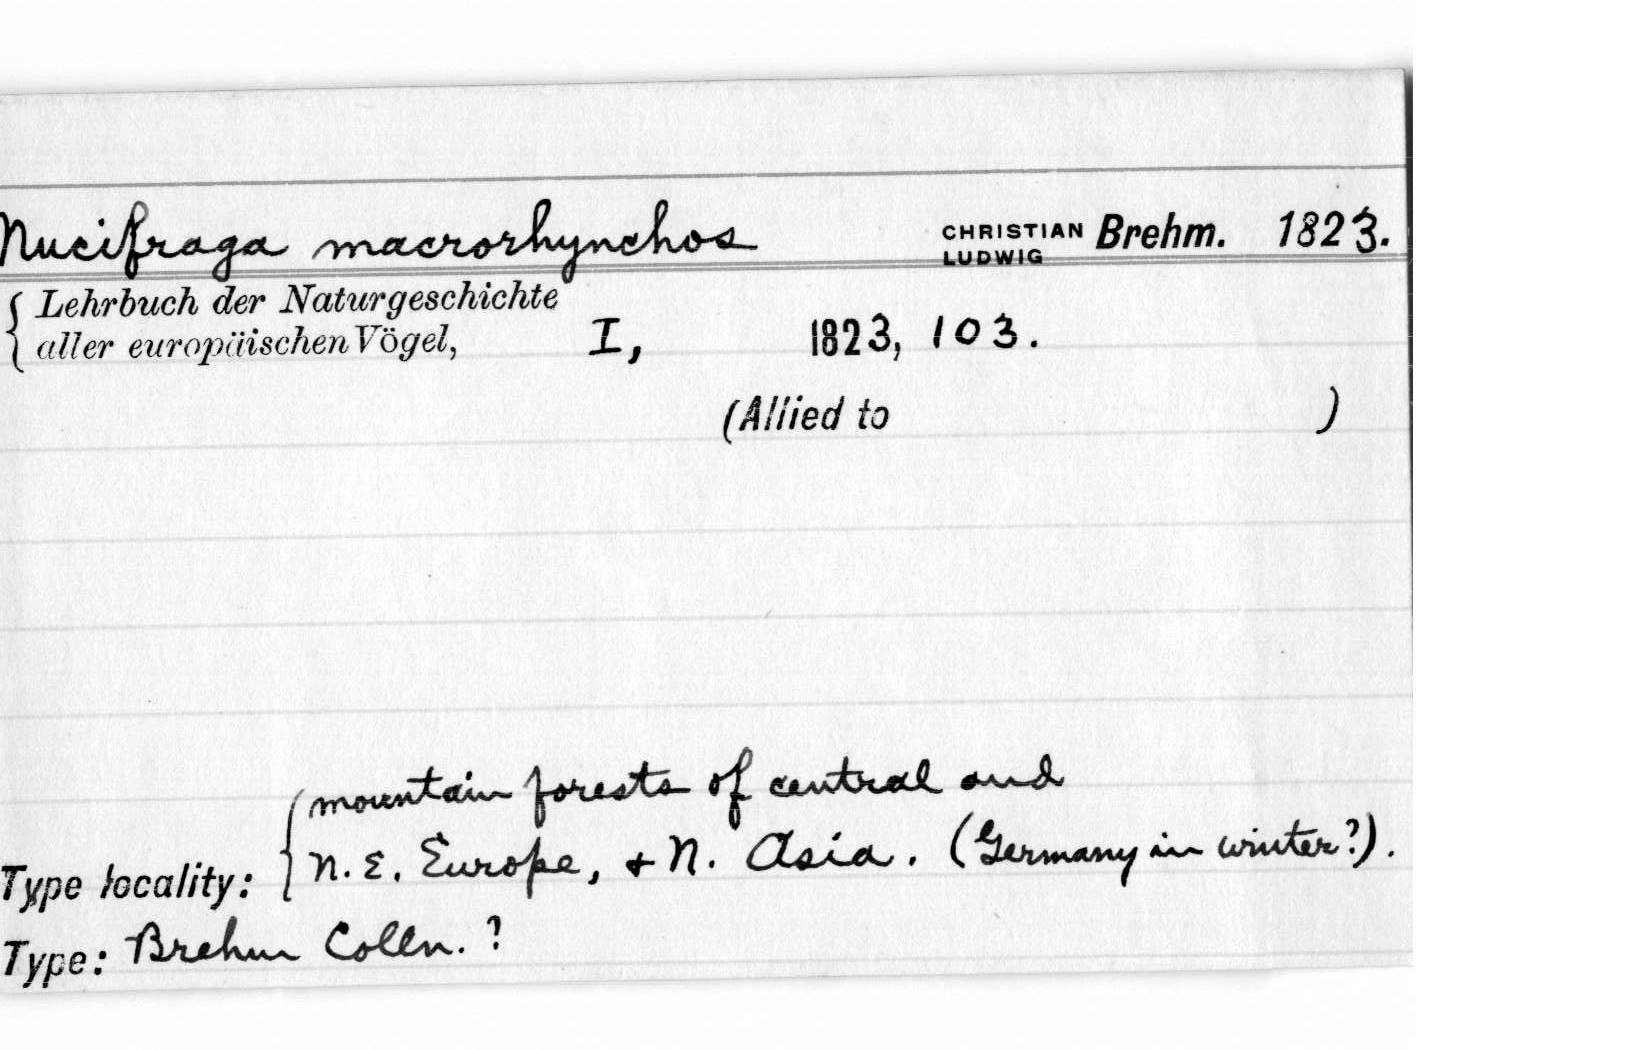 Nucifraga macrorhynchos CHRISTIAN LUDWIG Brehm. 1823.
Lehrbuch der Naturgeschichte
aller europäischen Vögel, I, 1823, 103.
(Allied to )
mountain forests of central and
Type locality: N. E. Europe, + N. Asia. (Germany in winter?).
Type: Brehm Colln. ?